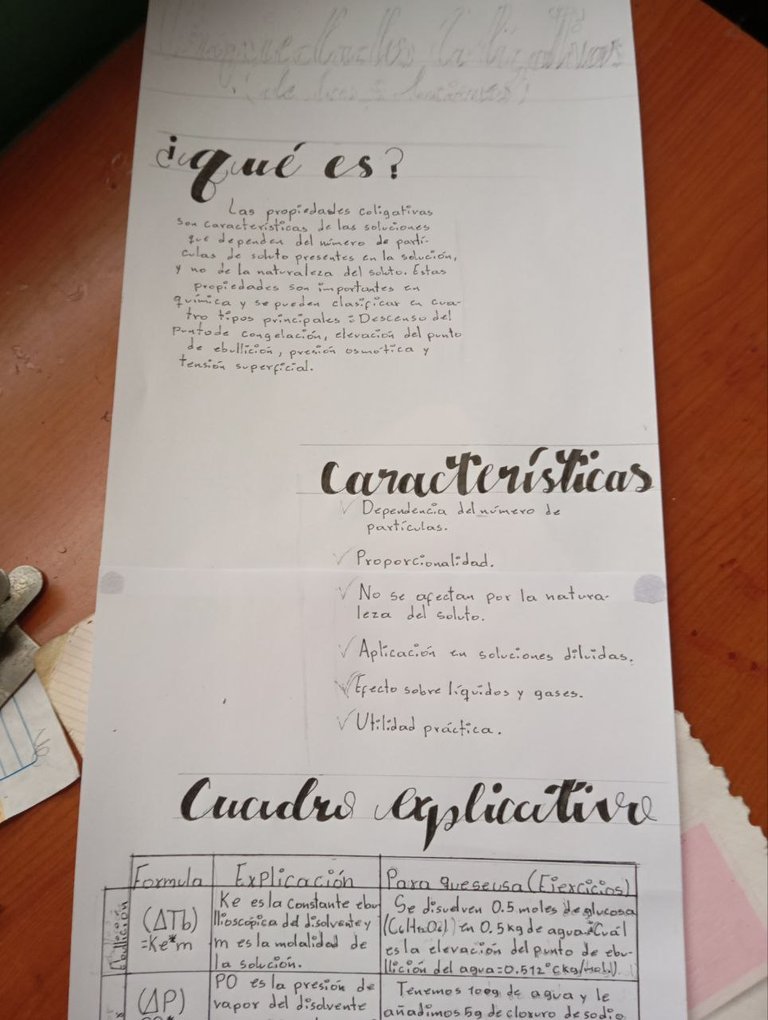 Propiedades Coligativas
(de las soluciones)
¿qué es?
Las propiedades coligativas
son características de las soluciones
que dependen del número de partí-
culas de soluto presentes en la solución,
y no de la naturaleza del soluto. Estas
propiedades son importantes en
química y se pueden clasificar en cua-
tro tipos principales: Descenso del
punto de congelación, elevación del punto
de ebullición, presión osmótica y
tensión superficial.
Características
Dependencia del número de
partículas.
Proporcionalidad.
No se afectan por la natura-
leza del soluto.
Aplicación en soluciones diluidas.
Efecto sobre líquidos y gases.
Utilidad práctica.
Cuadro explicativo
Formula Explicación Para que se usa (Ejercicios)
Ebullición
(ΔTb)
=Ke*m
Ke es la constante ebu
llioscópica del disolvente y
m es la molalidad de
la solución.
Se disuelven 0.5 moles de glucosa
(C6H12O6) en 0.5 kg de agua ¿Cuál
es la elevación del punto de ebu-
llición del agua=0.512°C kg/mol).
(ΔP)
PO es la presión de
vapor del disolvente
Tenemos 100g de agua y le
añadimos 5g de cloruro de sodio